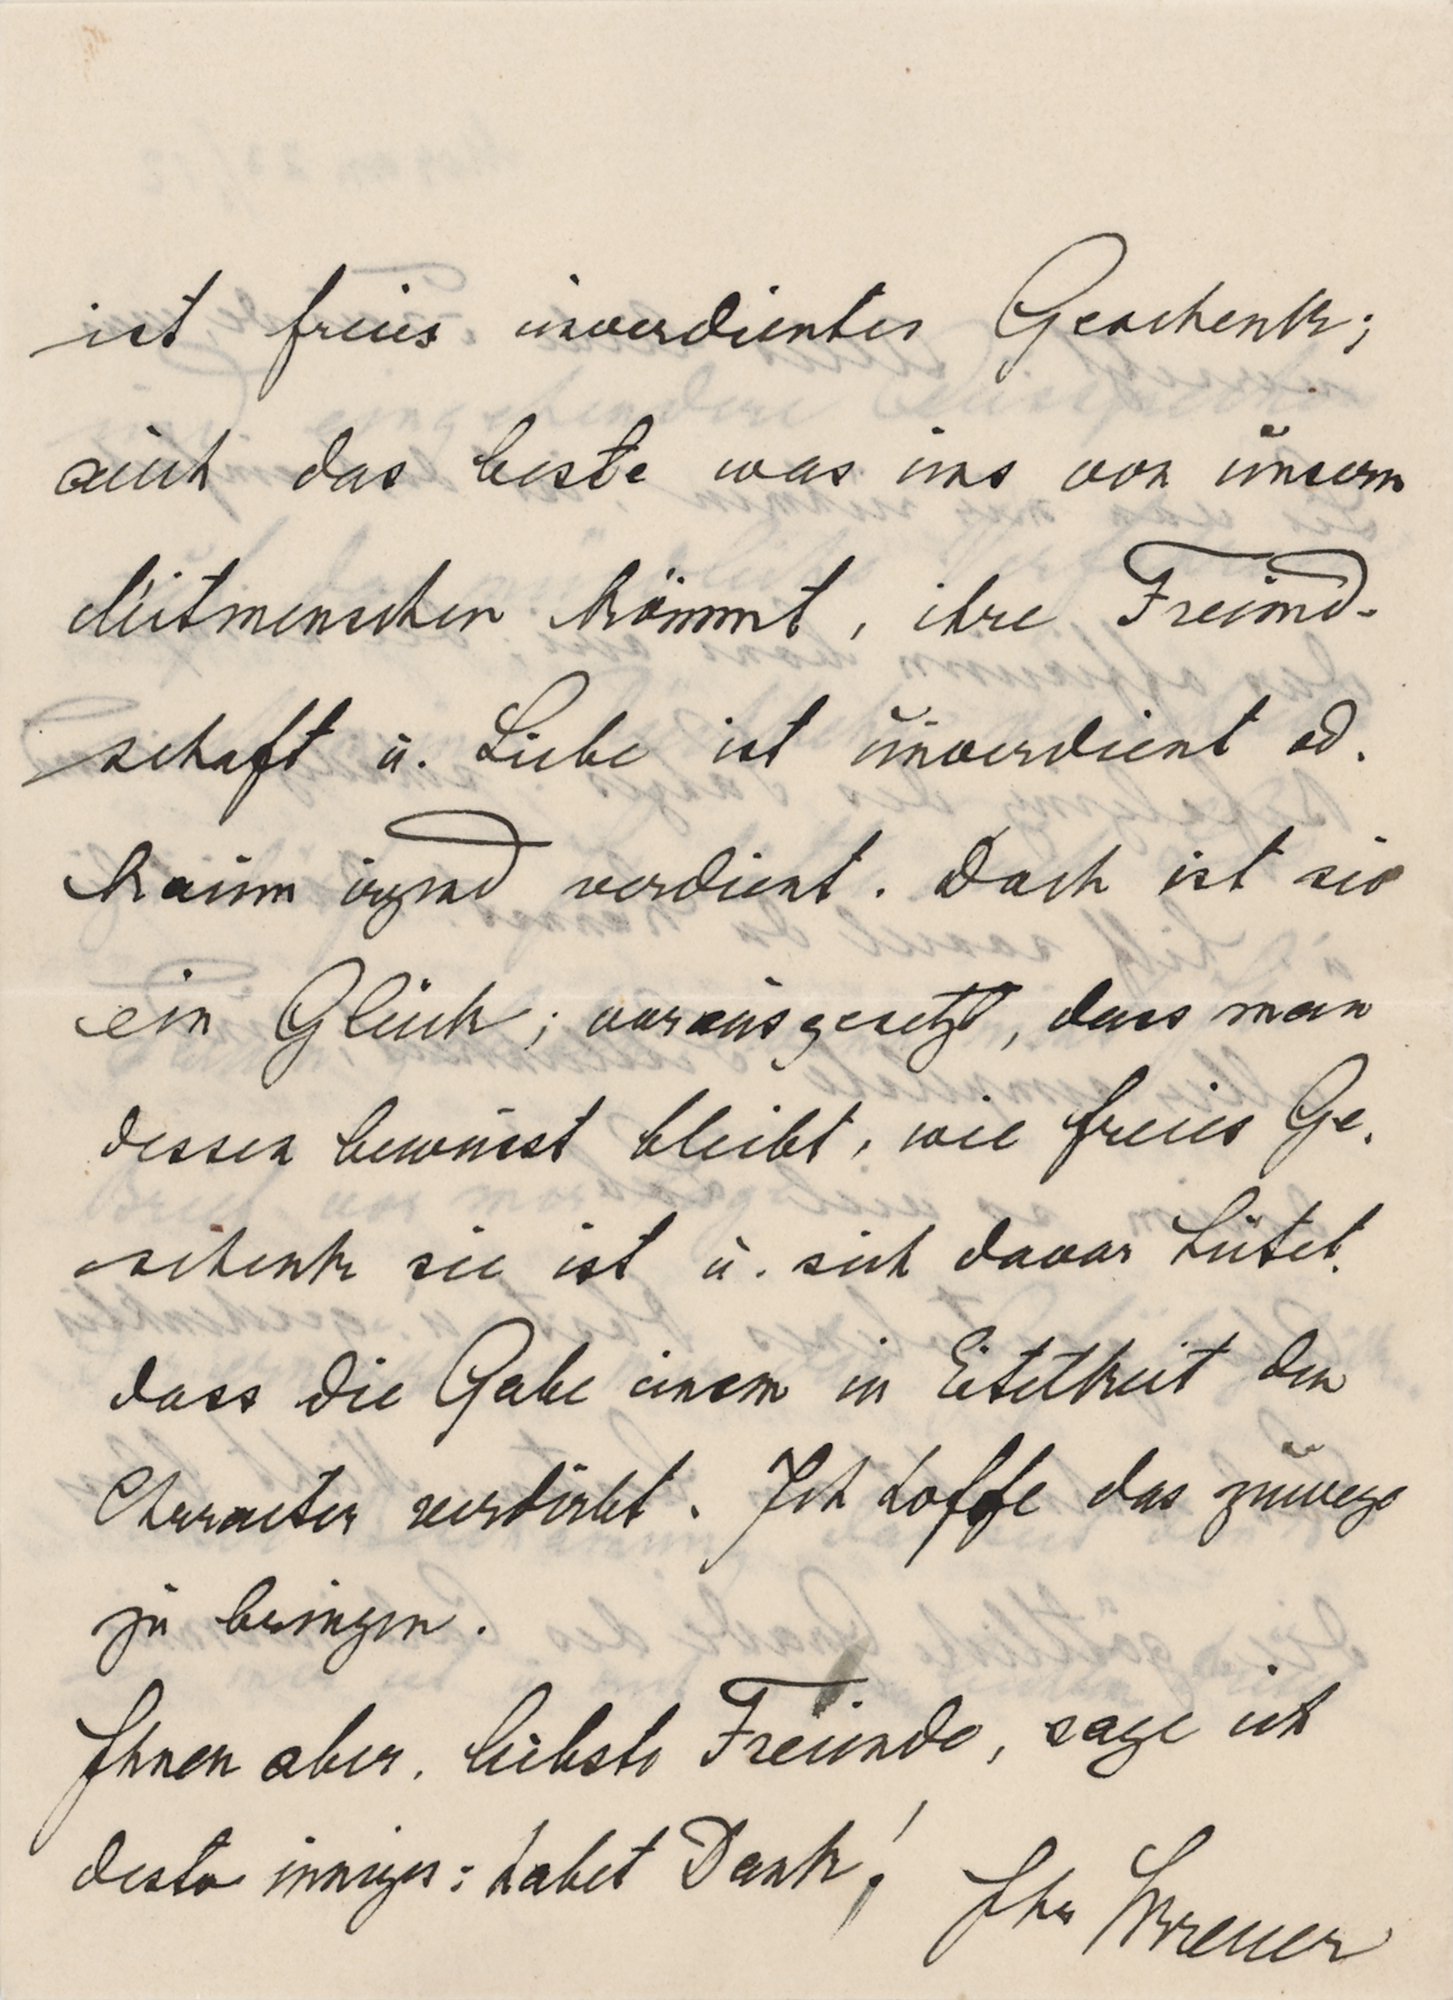 ist freies unverdientes Geschenk;
auch das beste was uns von unsern
Mitmenschen kömmt, ihre Freund-
schaft u. Liebe ist unverdient od.
kaum irgend verdient. Doch ist sie
ein Glück; vorausgesetzt, dass man
dessen bewusst bleibt, wie freies Ge-
schenk sie ist u. sich davor hütet,
dass die Gabe einem in Eitelkeit den
Character verdirbt. Ich hoffe das zuwege
zu bringen.
Ihnen aber, liebste Freunde, sage ich
desto inniger: habet Dank!
Ihr JBreuer